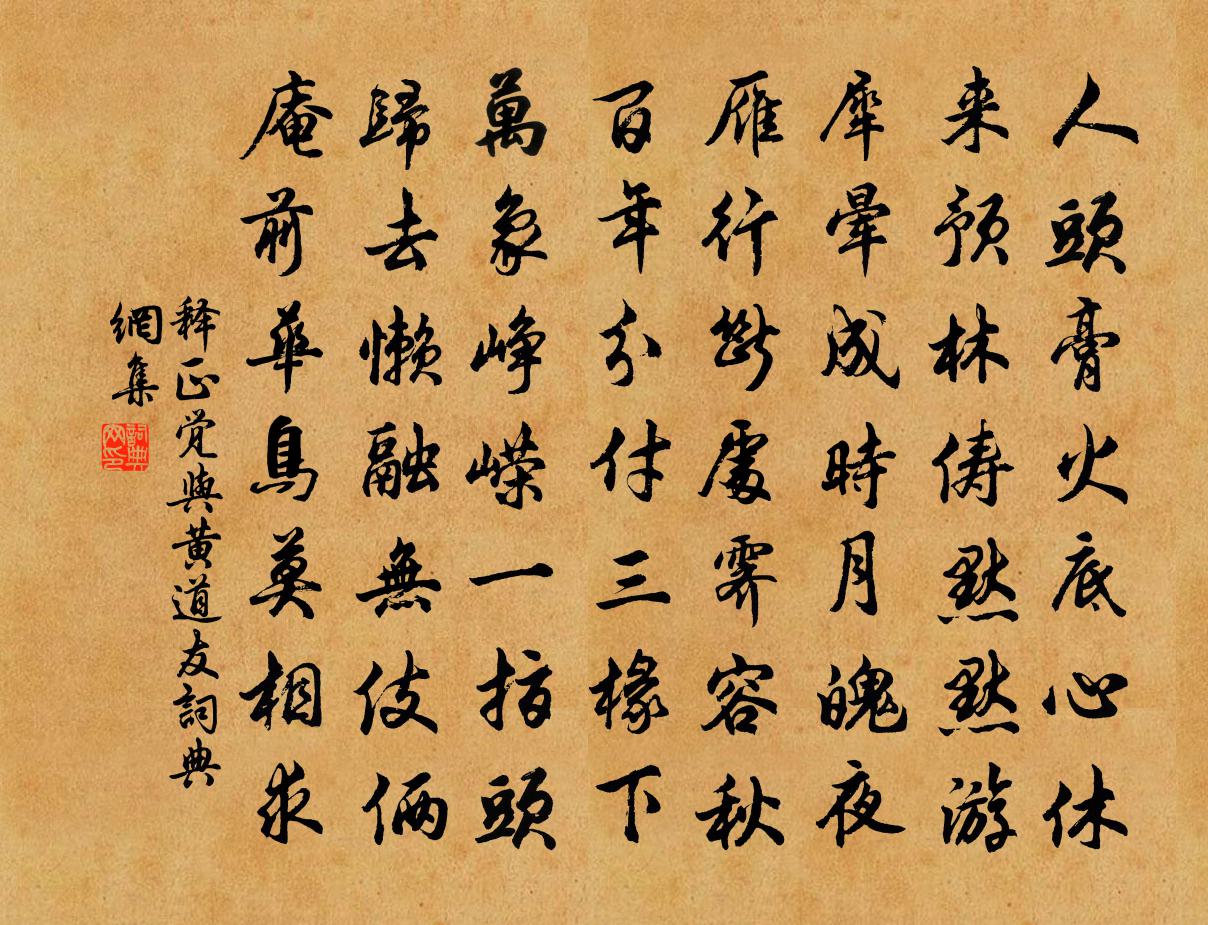 人頭膏火底心休
来預林俦默默游
犀暈成時月魄夜
雁行斷處霽容秋
百年分付三椽下
萬象峥嵘一指頭
歸去懒融無伎倆
庵前華鳥莫相求
释正觉與黄道友詞典
網集
詞典
网印